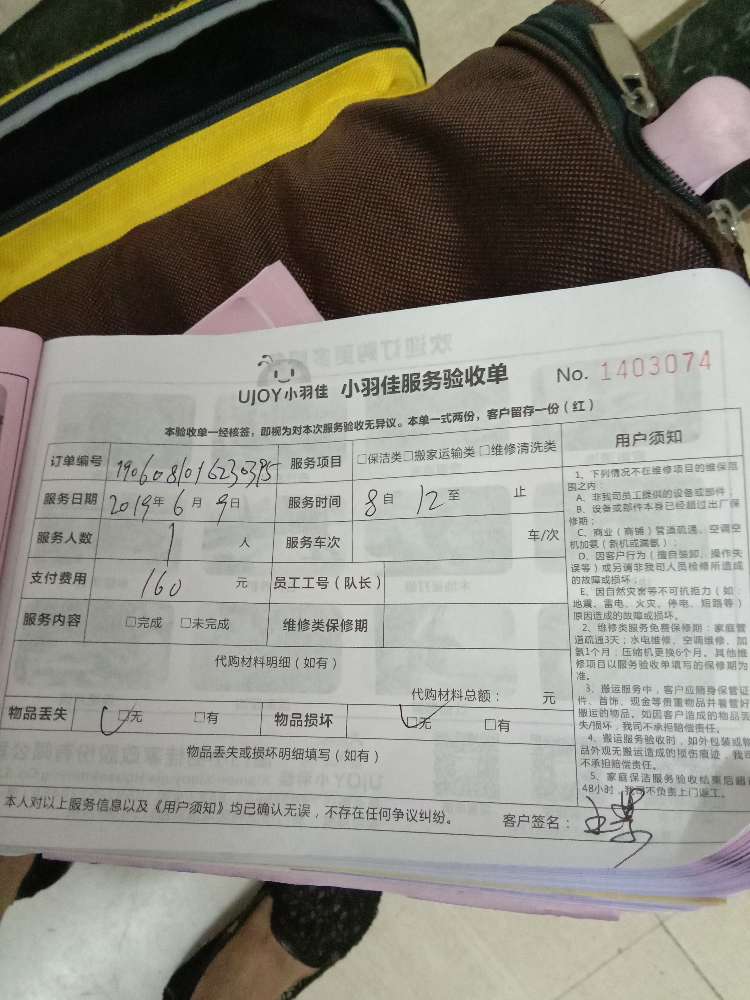 UJOY小羽佳 小羽佳服务验收单 No. 1403074
本验收单一经核签，即视为对本次服务验收无异议。本单一式两份，客户留存一份（红）
订单编号 服务项目 □保洁类□搬家运输类□维修清洗类
服务日期 2019年6月9日 服务时间 8自12至 止
服务人数 1 人 服务车次 车/次
支付费用 160 元 员工工号（队长）
服务内容 □完成 □未完成 维修类保修期
代购材料明细（如有）
代购材料总额： 元
物品丢失 □无 □有 物品损坏 □无 □有
物品丢失或损坏明细填写（如有）
本人对以上服务信息以及《用户须知》均已确认无误，不存在任何争议纠纷。 客户签名：
用户须知
1、下列情况不在维修项目的维保范
围之内：
A、非我司员工提供的设备或部件；
B、设备或部件本身已经超过出厂保
修期；
C、商业（商铺）管道疏通、空调空
机加氨（新机或漏氨）；
D、因客户行为（擅自装卸、操作失
误等）或另请非我司人员检修所造成
的故障或损坏
E、因自然灾害等不可抗拒力（如：
地震、雷电、火灾、停电、短路等）
原因造成的故障或损坏。
2、维修类服务免费保修期：家庭管
道疏通3天；水电维修、空调维修、加
氨1个月；压缩机更换6个月。其他维
修项目以服务验收单填写的保修期为
准。
3、搬运服务中，客户应随身保管证
件、首饰、现金等贵重物品并看管好
搬运的物品。如因客户造成的物品丢
失/损坏，我司不承担赔偿责任。
4、搬运服务验收时，如外包装或物
品外观无搬运造成的损伤痕迹，我司
不承担赔偿责任。
5、家庭保洁服务验收结束后超
48小时，我司不负责上门返工。